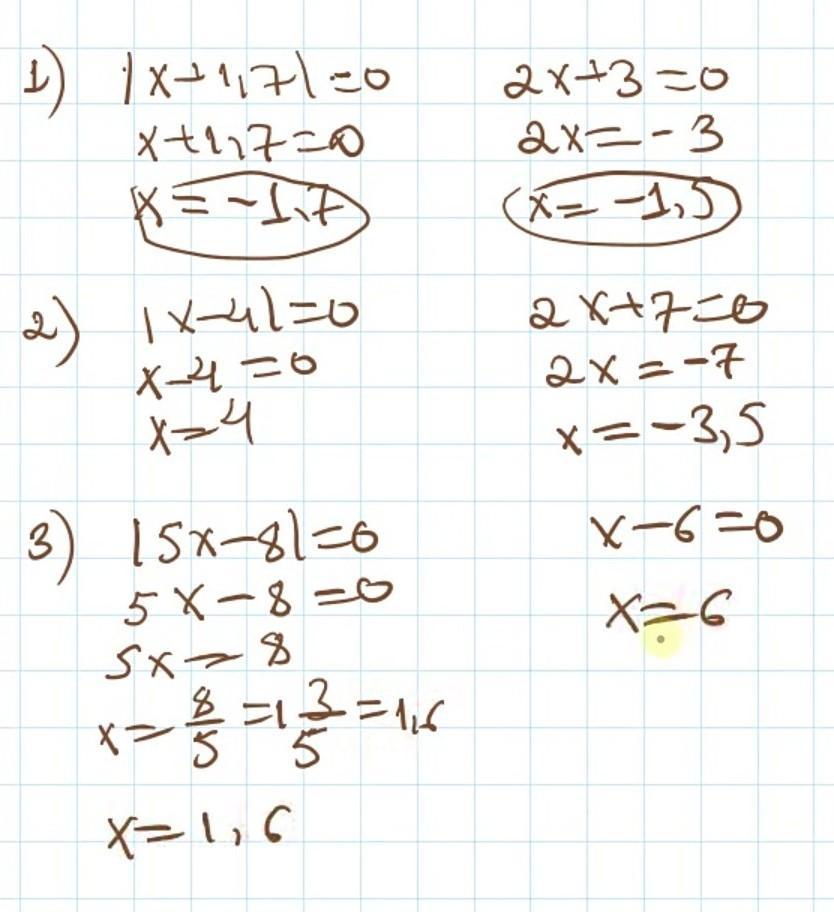 1) |x+1,7|=0
x+1,7=0
x=-1,7
2x+3=0
2x=-3
x=-1,5
2) |x-4|=0
x-4=0
x=4
2x+7=0
2x=-7
x=-3,5
3) |5x-8|=0
5x-8=0
5x=8
x=8/5=1 3/5=1,6
x=1,6
x-6=0
x=6